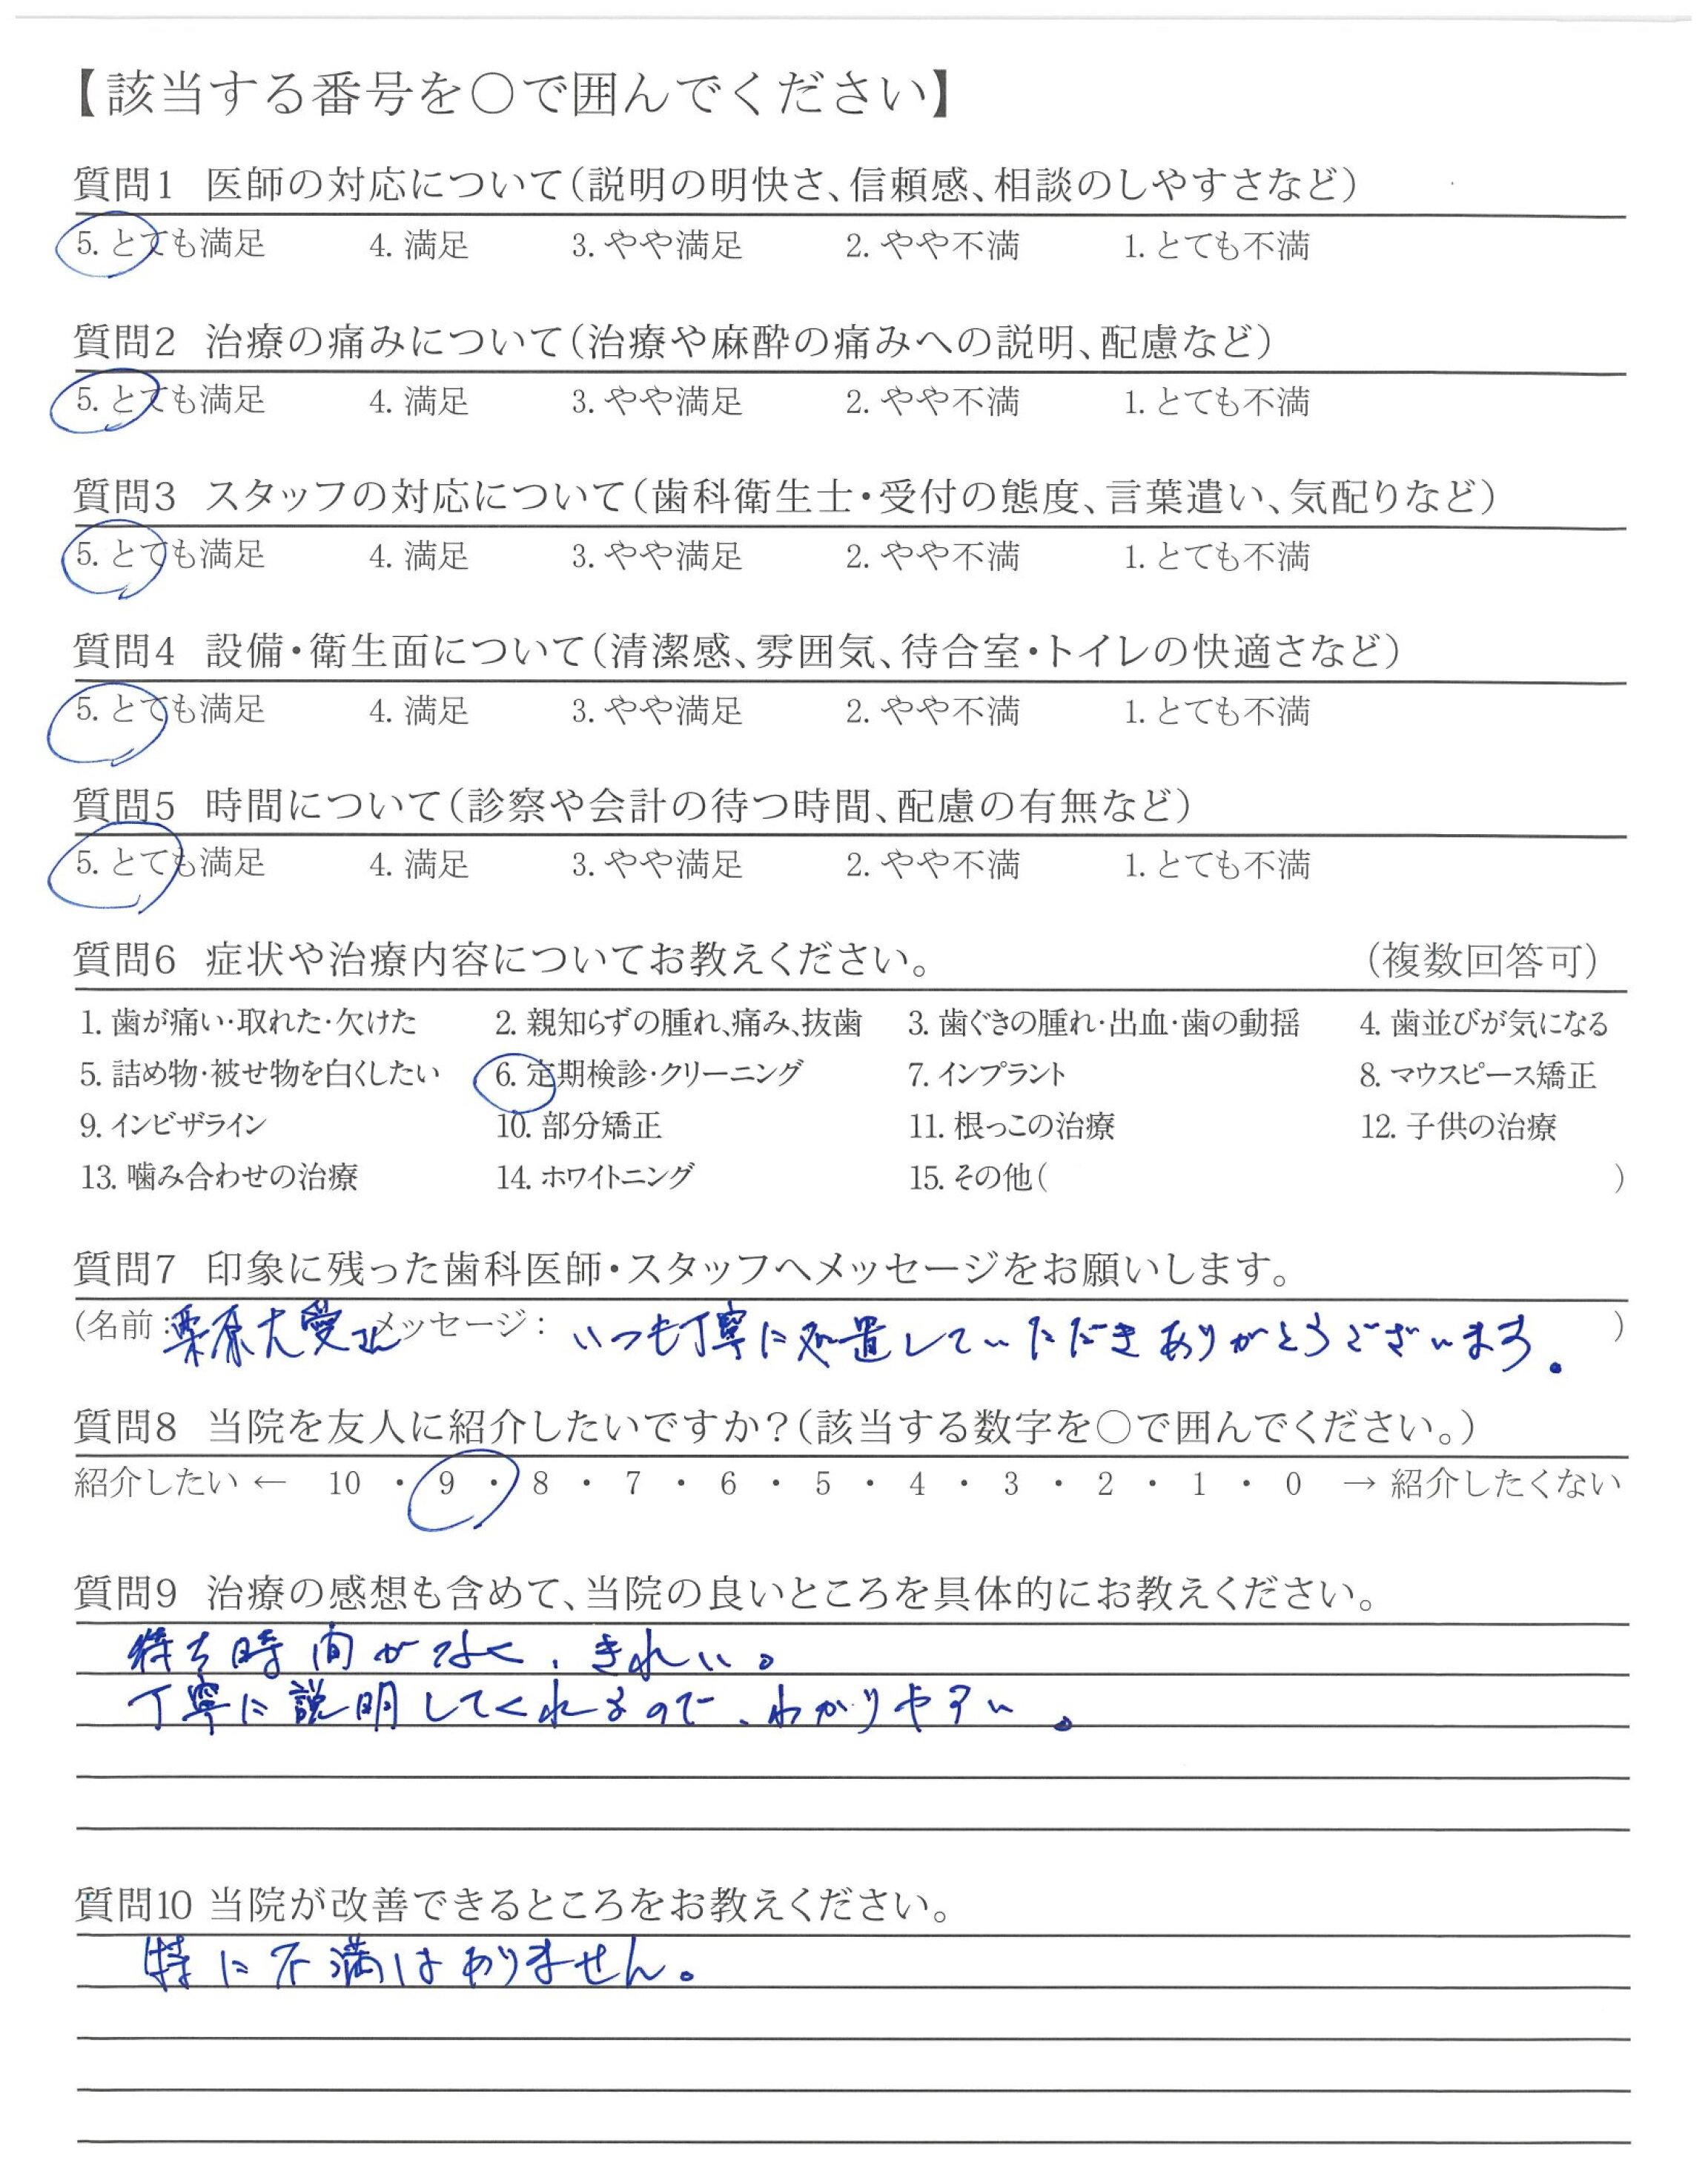 【該当する番号を〇で囲んでください】
質問1 医師の対応について（説明の明快さ、信頼感、相談のしやすさなど）
5. とても満足 4. 満足 3. やや満足 2. やや不満 1. とても不満
質問2 治療の痛みについて（治療や麻酔の痛みへの説明、配慮など）
5. とても満足 4. 満足 3. やや満足 2. やや不満 1. とても不満
質問3 スタッフの対応について（歯科衛生士・受付の態度、言葉遣い、気配りなど）
5. とても満足 4. 満足 3. やや満足 2. やや不満 1. とても不満
質問4 設備・衛生面について（清潔感、雰囲気、待合室・トイレの快適さなど）
5. とても満足 4. 満足 3. やや満足 2. やや不満 1. とても不満
質問5 時間について（診察や会計の待つ時間、配慮の有無など）
5. とても満足 4. 満足 3. やや満足 2. やや不満 1. とても不満
質問6 症状や治療内容についてお教えください。 （複数回答可）
1. 歯が痛い・取れた・欠けた 2. 親知らずの腫れ、痛み、抜歯 3. 歯ぐきの腫れ・出血・歯の動揺 4. 歯並びが気になる
5. 詰め物・被せ物を白くしたい 6. 定期検診・クリーニング 7. インプラント 8. マウスピース矯正
9. インビザライン 10. 部分矯正 11. 根っこの治療 12. 子供の治療
13. 噛み合わせの治療 14. ホワイトニング 15. その他（ ）
質問7 印象に残った歯科医師・スタッフへメッセージをお願いします。
（名前：栗原大愛 メッセージ： いつも丁寧に処置していただきありがとうございます。）
質問8 当院を友人に紹介したいですか？（該当する数字を〇で囲んでください。）
紹介したい ← 10 ・ 9 ・ 8 ・ 7 ・ 6 ・ 5 ・ 4 ・ 3 ・ 2 ・ 1 ・ 0 → 紹介したくない
質問9 治療の感想も含めて、当院の良いところを具体的にお教えください。
待ち時間がなく、きれい。
丁寧に説明してくれるので、わかりやすい。
質問10 当院が改善できるところをお教えください。
特に不満はありません。